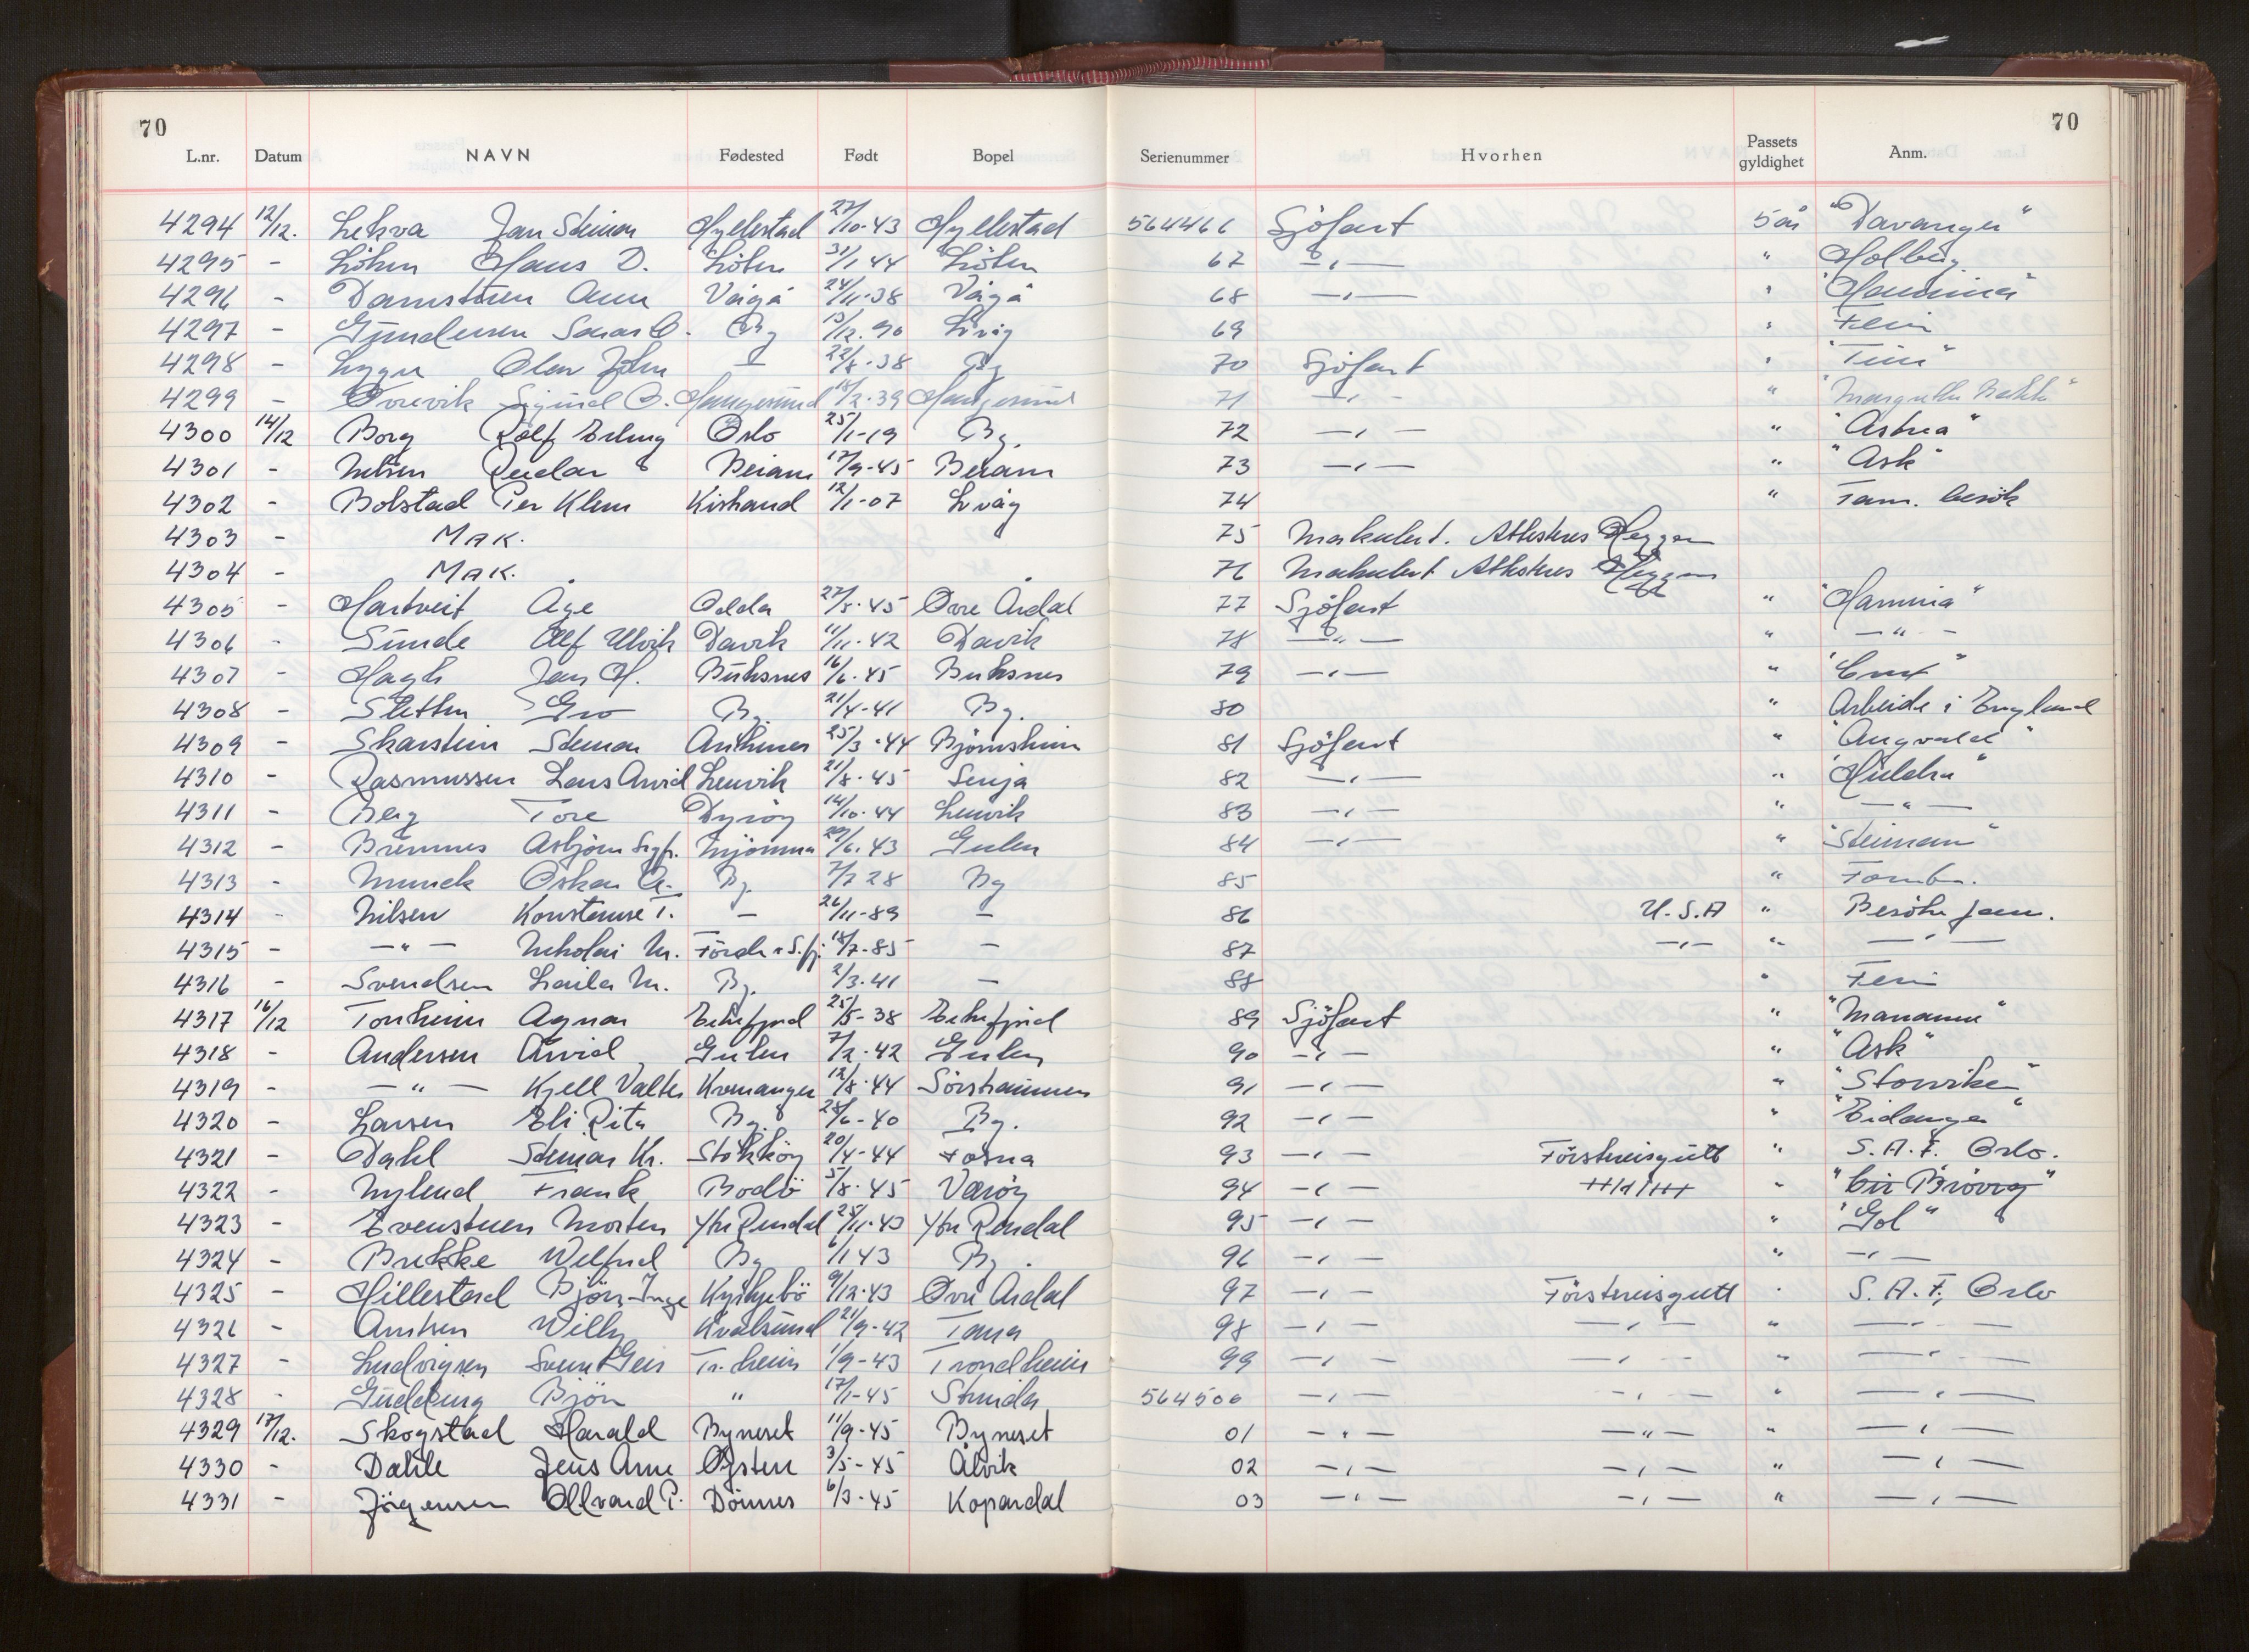 70 70
L.nr. Datum NAVN Fødested Født Bopel Serienummer Hvorhen Passets gyldighet Anm.
4294 12/12. Lekva Jan Steinar Hyllestad 27/10-43 Hyllestad 564466 Sjöfart 5 år "Davanger"
4295 - Löken Hans D. Löten 31/1 44 Löten 67 -"- " Holberg
4296 - Damstuen Vågå 24/11-38 Vågå 68 -"- "
4297 - Gundersen By 13/12.90 69 " Ferie
4298 - Olav John - 22/8-38 Bg 70 Sjöfart "
4299 - Haugesund 18/2-39 Haugesund 71 -"- "
4300 14/12 Borg Rolf Erling Oslo 25/1-19 Bg. 72 -"- " "Astrea"
4301 - Nilsen Reidar Beiarn 17/9-45 Beiarn 73 -"- " "Ask"
4302 - Bolstad Per Klem 12/1-07 74 " Fam. besök
4303 - MAK. 75 Makulert. Attesteres Heggen
4304 - MAK. 76 Makulert Attesteres Heggen
4305 - Hartveit Åge Odda 27/5-45 Övre Årdal 77 Sjöfart "
4306 - Sunde Alf Ulvik Davik 11/11-42 Davik 78 -"- " -"-
4307 - Jan H. Buksnes 16/6-45 Buksnes 79 -"- "
4308 - Sletten Gro Bg. 21/4-41 Bg. 80 " Arbeide i England
4309 - Skarstein Steinar 25/3-44 81 Sjöfart " "Angvald"
4310 - Rasmussen Lars Arvid Lenvik 21/8-45 Senja 82 -"- " "Huldra"
4311 - Berg Tore Dyröy 14/10-44 Lenvik 83 -"- " -"-
4312 - Bremnes Asbjörn Sigfr. Mjömna 29/6.43 Gulen 84 -"- " "Steinan"
4313 - Munck Oskar A. Bg. 7/7 28 Bg 85 "
4314 - Nilsen Konstanse T. - 26/11-89 - 86 U.S.A " Besöke fam.
4315 - -"- Nikolai M. Förde i S.fj. 18/7-85 - 87 -"- " -"-
4316 - Svendsen Laila M. Bg. 2/3-41 - 88 " Ferie
4317 16/12 Torheim Agnar Eikefjord 25/5-38 Eikefjord 89 Sjöfart "
4318 - Andersen Arvid Gulen 7/2-42 Gulen 90 -"- " "Ask"
4319 - -"- Kjell Valter 12/8-44 91 -"- " "Storviken"
4320 - Larsen Eli Rita Bg. 28/6-40 Bg. 92 -"- " "Eidanger"
4321 - Dahl Steinar Kr. Stokköy 20/4-44 Fosna 93 -"- Förstereisgutt " S.A.F. Oslo.
4322 - Nylund Frank Bodö 5/8-45 Væröy 94 -"- "
4323 - Evenstuen Morten Ytre Rendal 25/11-43 Ytre Rendal 95 -"- " "Gol"
4324 - Brekke Wilfred Bg 6/1 43 Bg. 96 -"- " -"-
4325 - Hillestad Björn Inge Kyrkjebö 9/12-43 Övre Årdal 97 -"- Förstereisgutt " S.A.F., Oslo
4326 - Arntsen Willy Kvalsund 21/9-42 Tana 98 -"- -"- " -"-
4327 - Ludvigsen Svein Geir Tr.heim 1/9-43 Trondheim 99 -"- -"- " -"-
4328 - Björn " 17/1-45 Strinda 564500 -"- -"- " -"-
4329 17/12. Skogstad Harald Byneset 11/9-45 Byneset 01 -"- -"- " -"-
4330 - Dahle Jens Arne Øystese 3/5-45 Ålvik 02 -"- -"- " -"-
4331 - Jörgensen Dönnes 6/3-45 Kopardal 03 -"- -"- " -"-